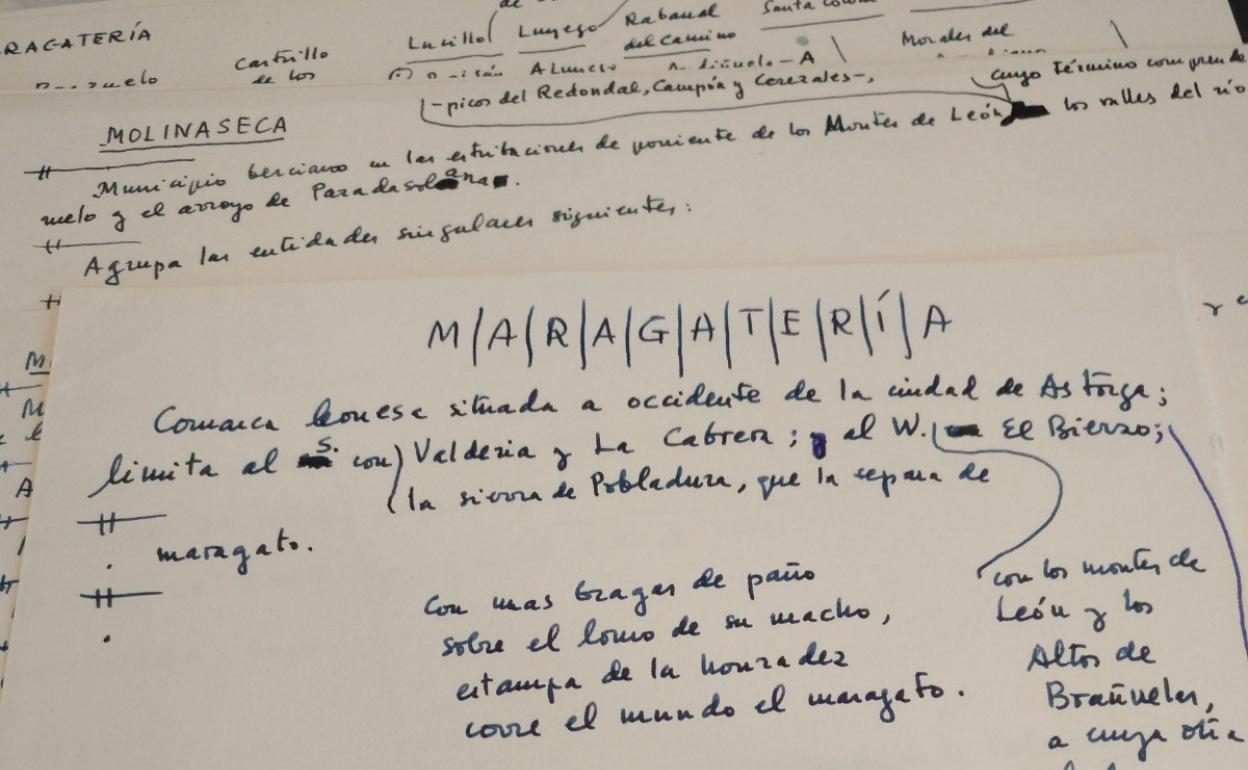 RAGATERÍA
Castrillo
de los
Lucillo
Luyego
Rabanal
del Camino
Santa
Morales del
-picos del Redondal, Campón y Cerezales-,
cuyo término comprende
MOLINASECA
Municipio berciano en las estribaciones de poniente de los Montes de León los valles del río
ruelo y el arroyo de Paradasolana.
Agrupa las entidades singulares siguientes:
M/A/R/A/G/A/T/E/R/Í/A
Comarca leonesa situada a occidente de la ciudad de Astorga;
limita al S. con Valdería y La Cabrera; y al W. El Bierzo;
la sierra de Pobladura, que la separa de
maragato.
Con unas bragas de paño
sobre el lomo de su macho,
estampa de la honradez
corre el mundo el maragato.
con los montes de
León y los
Altos de
Brañuelas,
a cuya otra